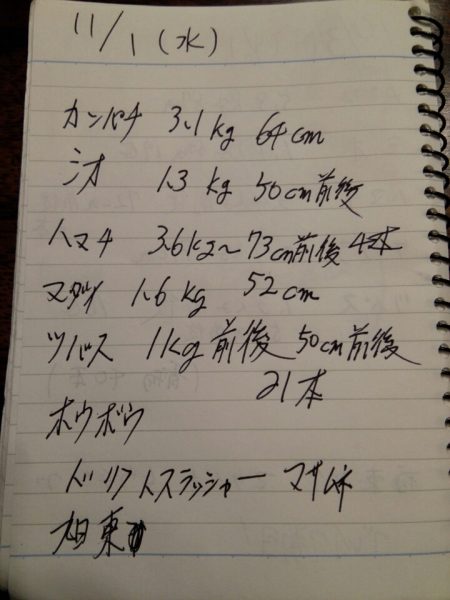 11/1 (水)
カンパチ 3.1kg 64cm
シオ 1.3kg 50cm前後
ハマチ 3.6kg〜73cm前後 4本
マダイ 1.6kg 52cm
ツバス 1kg前後 50cm前後
21本
ホウボウ
ドリフトスラッシャー